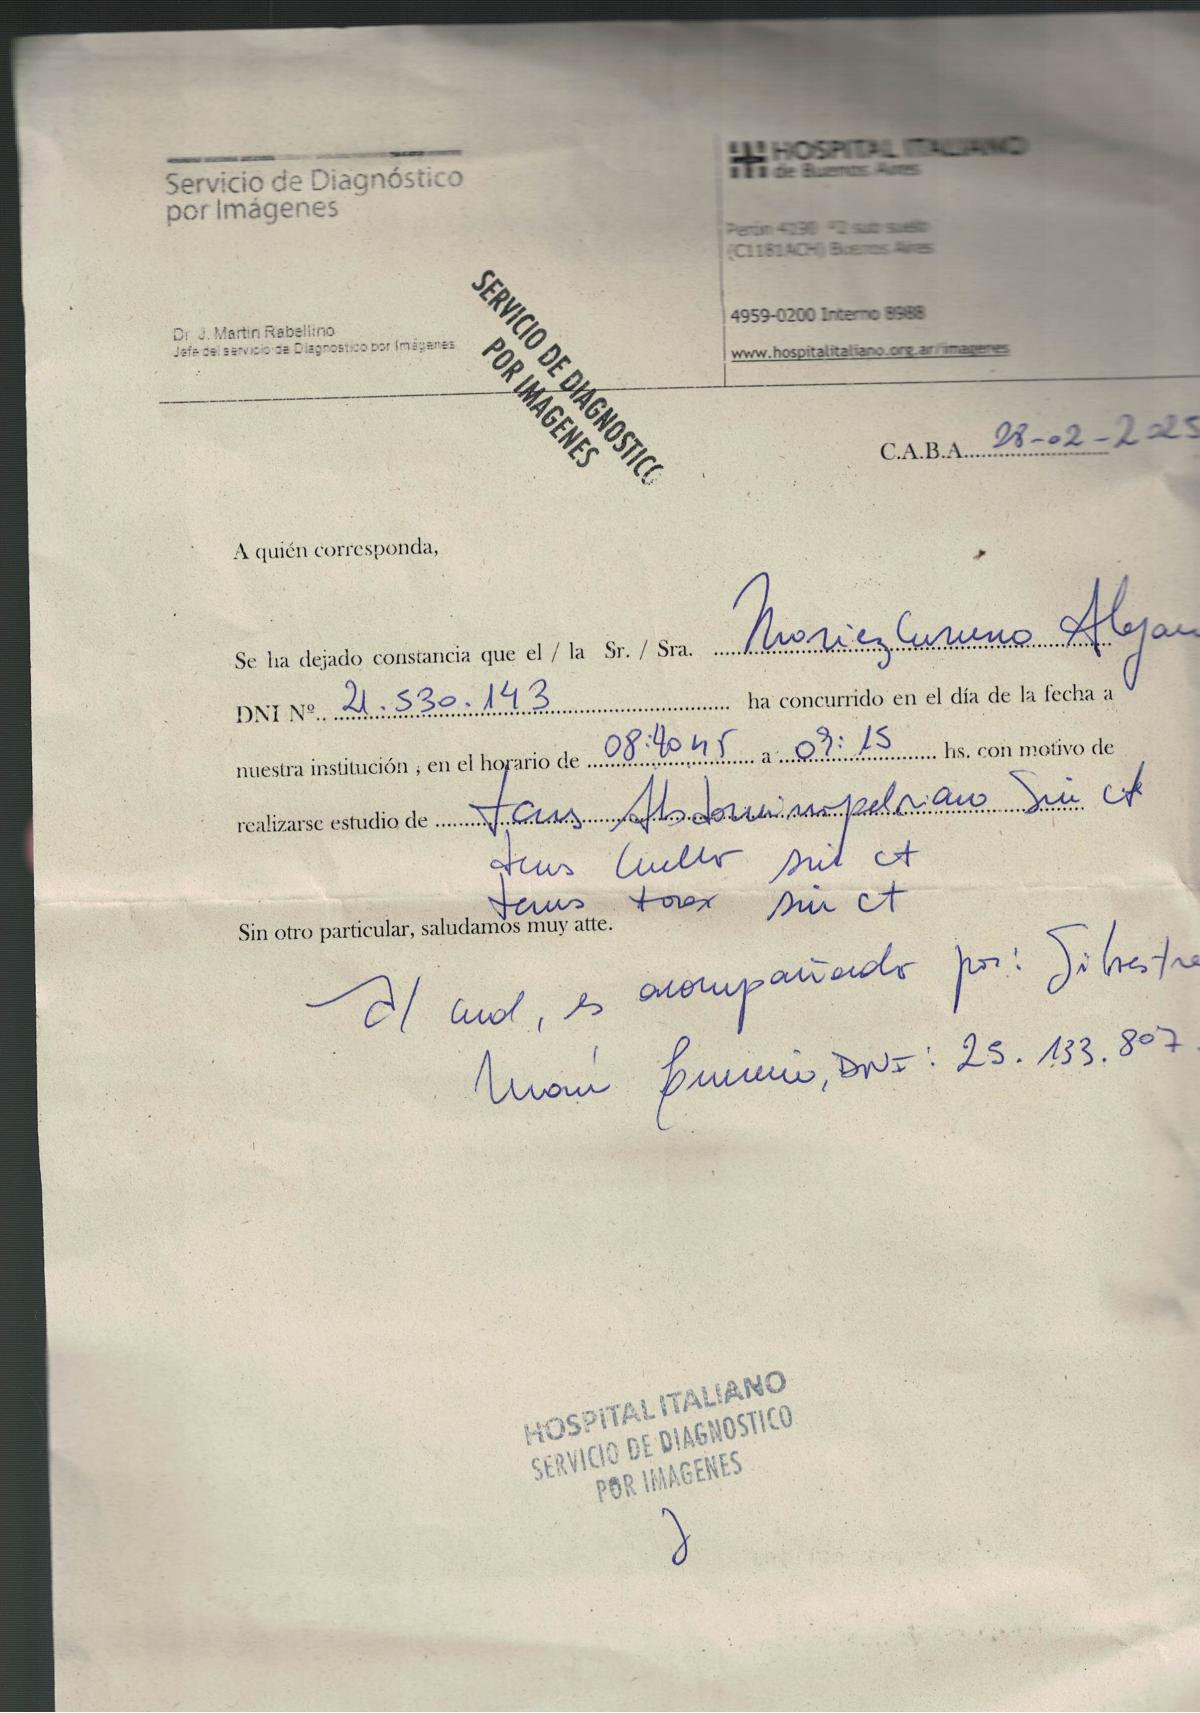 Servicio de Diagnóstico
por Imágenes
HOSPITAL ITALIANO
de Buenos Aires
Perón 4190 sub suelo
(C1181ACH) Buenos Aires
Dr J. Martin Rabellino
Jefe del servicio de Diagnostico por Imágenes
4959-0200 Interno 8988
www.hospitalitaliano.org.ar/imagenes
SERVICIO DE DIAGNOSTICO
POR IMAGENES
C.A.B.A. 28-02-2025
A quién corresponda,
Se ha dejado constancia que el / la Sr. / Sra.
DNI Nº.. 21.530.143 ha concurrido en el día de la fecha a
nuestra institución , en el horario de a 09:15 hs. con motivo de
realizarse estudio de Abdominopelviano Sin ct
Cuello sin ct
torax sin ct
Sin otro particular, saludamos muy atte.
Al cual, es acompañado por: Silvestre
DNI: 25.133.807
HOSPITAL ITALIANO
SERVICIO DE DIAGNOSTICO
POR IMAGENES